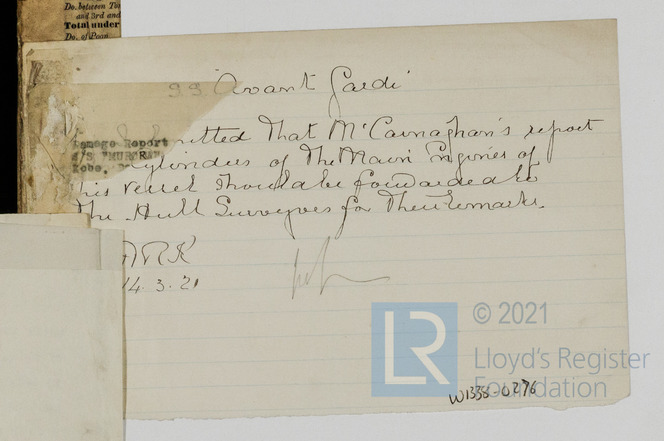 Do. between
and 3rd and
Total under
Do. of Poop
S.S. 'Avant Gardi'
Damage Report
Kobe,
submitted that Mr Carnaghan's report
Cylinders of the Main Engines of
this vessel should be forwarded to
the Hull Surveyors for their remarks.
14.3.21
LR
© 2021
Lloyd's Register
Foundation
W1338-0276